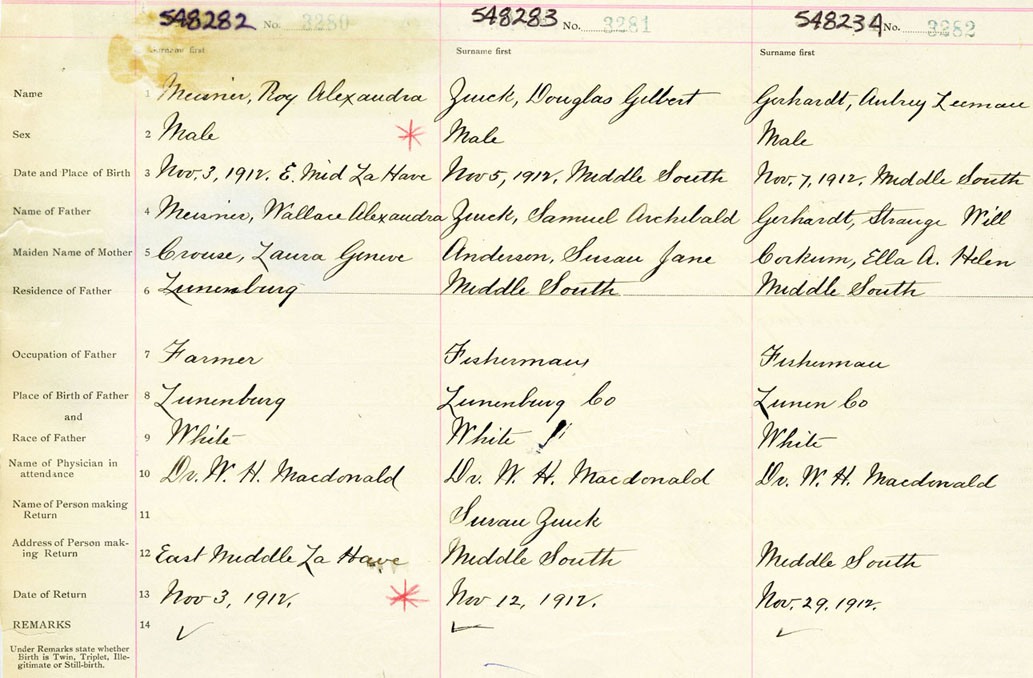 548282 No. 3280 548283 No. 3281 548234 No. 3282
Surname first Surname first Surname first
Name 1 Meisner, Roy Alexandra Zuick, Douglas Gilbert Gerhardt, Aubrey Leeman
Sex 2 Male Male Male
Date and Place of Birth 3 Nov. 3, 1912. E. Mid La Have Nov 5, 1912. Middle South Nov. 7, 1912. Middle South
Name of Father 4 Meisner, Wallace Alexandra Zuick, Samuel Archibald Gerhardt, Strange Will
Maiden Name of Mother 5 Crouse, Laura Geneve Anderson, Susan Jane Corkum, Ella A. Helen
Residence of Father 6 Lunenburg Middle South Middle South
Occupation of Father 7 Farmer Fisherman Fisherman
Place of Birth of Father 8 Lunenburg Lunenburg Co Lunen Co
and
Race of Father 9 White White White
Name of Physician in
attendance 10 Dr. W. H. Macdonald Dr. W. H. Macdonald Dr. W. H. Macdonald
Name of Person making
Return 11 Susan Zuick
Address of Person mak-
ing Return 12 East Middle La Have Middle South Middle South
Date of Return 13 Nov 3, 1912. Nov 12, 1912. Nov. 29, 1912.
REMARKS 14
Under Remarks state whether
Birth is Twin, Triplet, Ille-
gitimate or Still-birth.